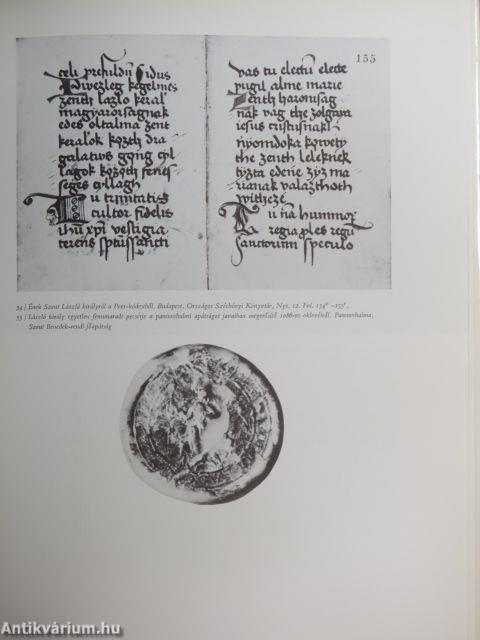 celi presidiū sidus
Idwezleg kegelmes
zenth lazlo keral
magyarorsagnak
edes oltalma zent
keralok kozth dra
galatws gong cyl
lagok kozoth fenes
seges cyllagh
Tu trinitatis
cultor fidelis
ihū xp̄i vestigia
terens spūssancti
155
vas tu electū electe
pugil alme marie
Zenth haromsag
nak vag the zolgaya
iesus cristusnakl
nyomdoka kowety
the zenth leleknek
tyzta edene zyz ma
rianak valazthoth
witheze
Tu nā hummoz
regia ples regū
sanctorum speculo
54 / Ének Szent László királyról a Peer-kódexből. Budapest, Országos Széchényi Könyvtár, Nyt. 12. Fol. 154v–155r.
55 / László király egyetlen fennmaradt pecsétje a pannonhalmi apátságot javaiban megerősítő 1086-os oklevélről. Pannonhalma,
Szent Benedek-rendi főapátság
Antikvárium.hu